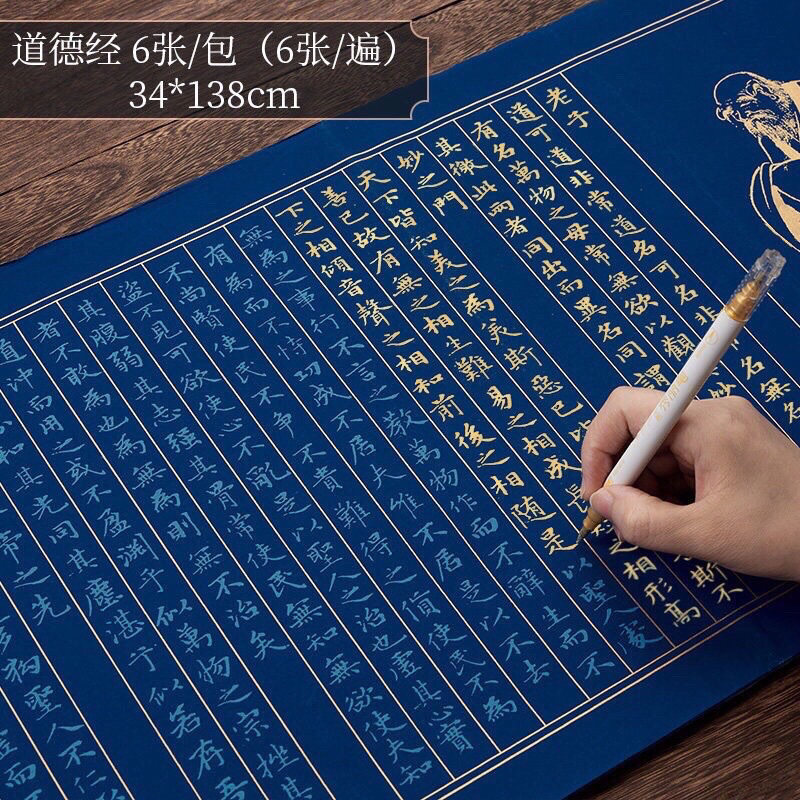 道德经 6张/包（6张/遍）
34*138cm
老子
道可道非常道名可名非名無名
有名萬物之母常無欲以觀妙
其徼此兩者同出而異名同謂
妙之門
天下皆知美之為美斯惡已皆斯不
善已故有無之相生難易之相成長之相形高
下之相傾音聲之相和前後之相随是以聖人處
無為之事行不言之教萬物作而不辭生而不
有為而不恃功成不居夫惟不居是以不去
不尚賢使民不爭不貴難得之貨使民不為
盜不見可欲使心不亂是以聖人之治也虛其心實
其腹弱其志強其骨常使民無知無欲使夫知
者不敢為也為無為則無不治矣
道沖而用之或不盈淵乎似萬物之宗挫其
和其光同其塵湛乎似若存吾
帝之先
狗聖人不仁